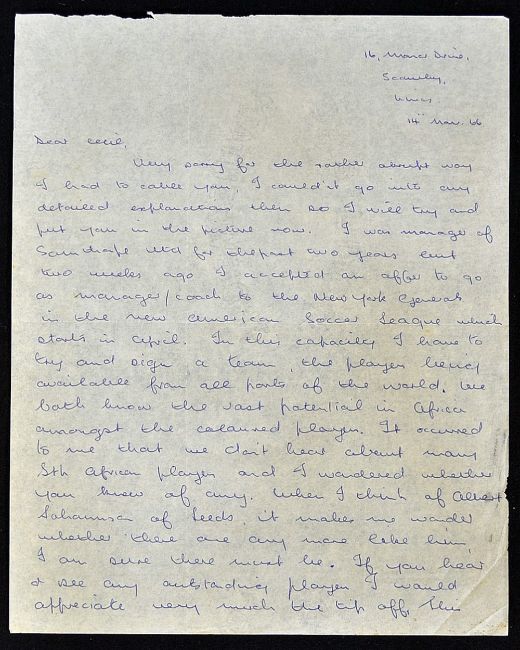 16, Manor Drive,
Scawby,
Lincs
14th Nov. 66
Dear Cecil,
Very sorry for the rather abrupt way
I had to cable you, I couldn't go into any
detailed explanations then so I will try and
put you in the picture now. I was manager of
Scunthorpe Utd for the past two years but
two weeks ago I accepted an offer to go
as manager/coach to the New York Generals
in the new American Soccer League which
starts in April. In this capacity I have to
try and sign a team, the players being
available from all parts of the world. We
both know the vast potential in Africa
amongst the coloured players. It occurred
to me that we don't hear about many
Sth African players and I wondered whether
you knew of any. When I think of Albert
Johannson of Leeds, it makes me wonder
whether there are any more like him,
I am sure there must be. If you hear
or see any outstanding players I would
appreciate very much the tip off, this